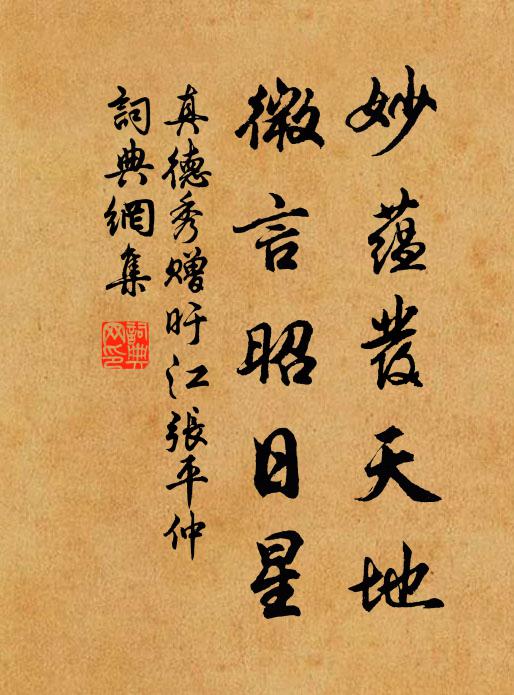 妙蘊發天地
微言昭日星
真德秀贈盱江張平仲
詞典網集
詞典
网印